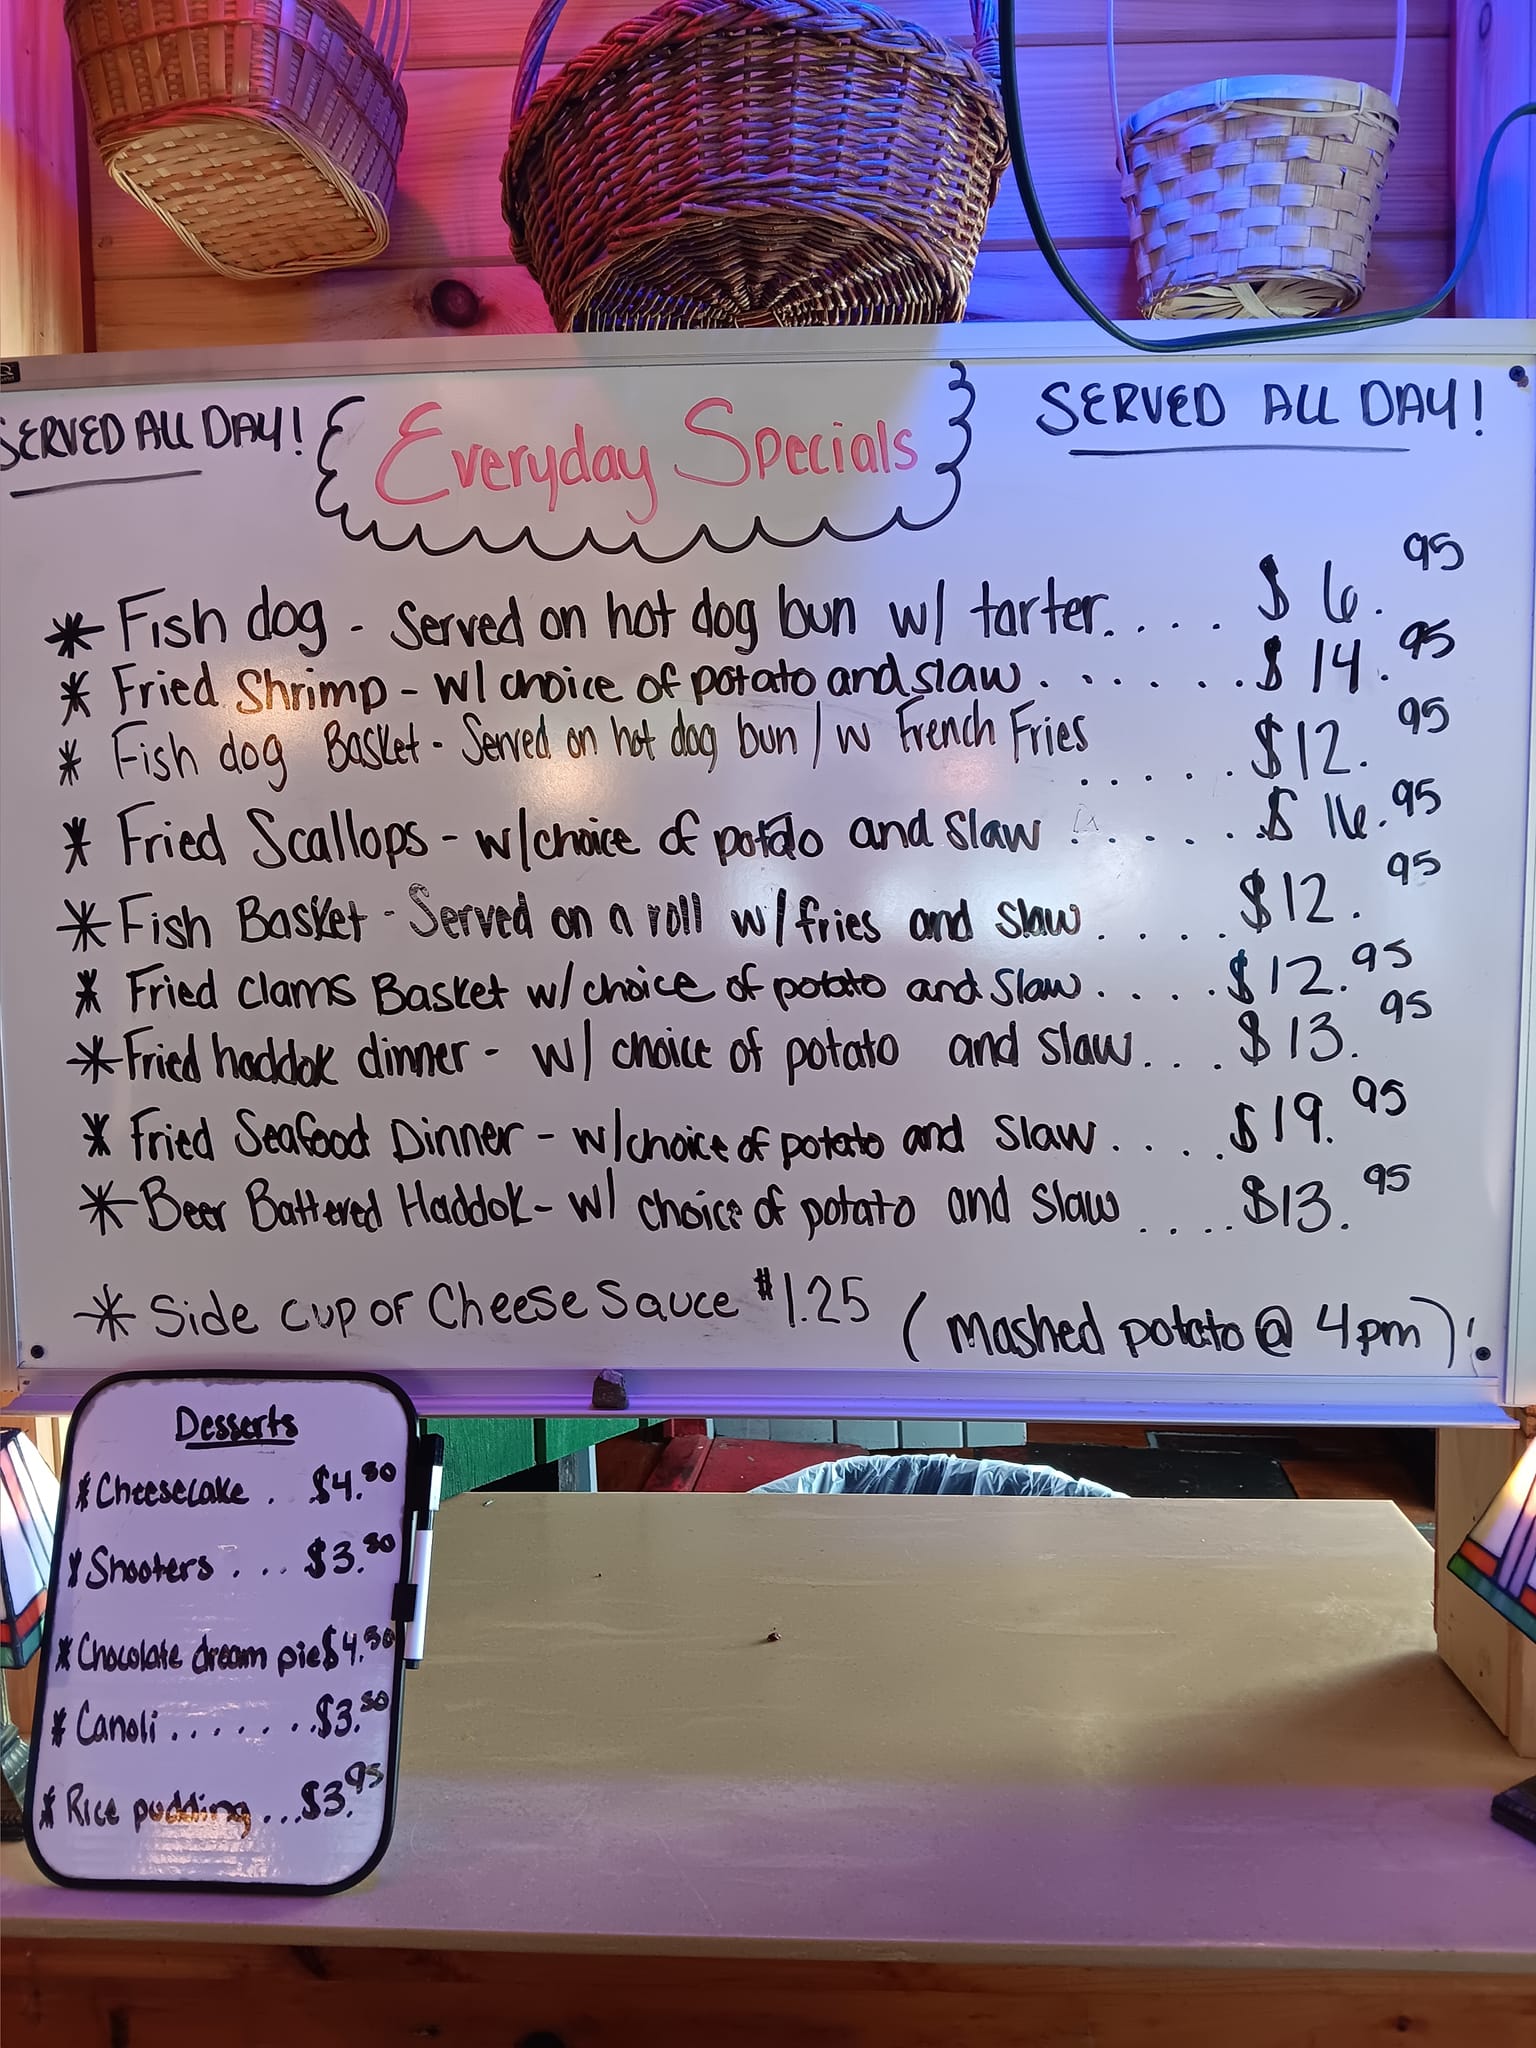 SERVED ALL DAY! Everyday Specials SERVED ALL DAY!
* Fish dog - Served on hot dog bun w/ tarter..... $6.95
* Fried Shrimp - w/ choice of potato and slaw....... $14.95
* Fish dog Basket - Served on hot dog bun / w French Fries ..... $12.95
* Fried Scallops - w/choice of potato and slaw ...... $16.95
* Fish Basket - Served on a roll w/fries and slaw..... $12.95
* Fried Clams Basket w/choice of potato and slaw..... $12.95
* Fried haddok dinner - w/ choice of potato and slaw... $13.95
* Fried Seafood Dinner - w/choice of potato and slaw..... $19.95
* Beer Battered Haddok - w/ choice of potato and slaw .... $13.95
* Side cup of Cheese Sauce $1.25 (Mashed potato @ 4pm)!
Desserts
* Cheesecake . $4.50
* Shooters .... $3.50
* Chocolate dream pie $4.50
* Canoli ....... $3.50
* Rice pudding ... $3.95